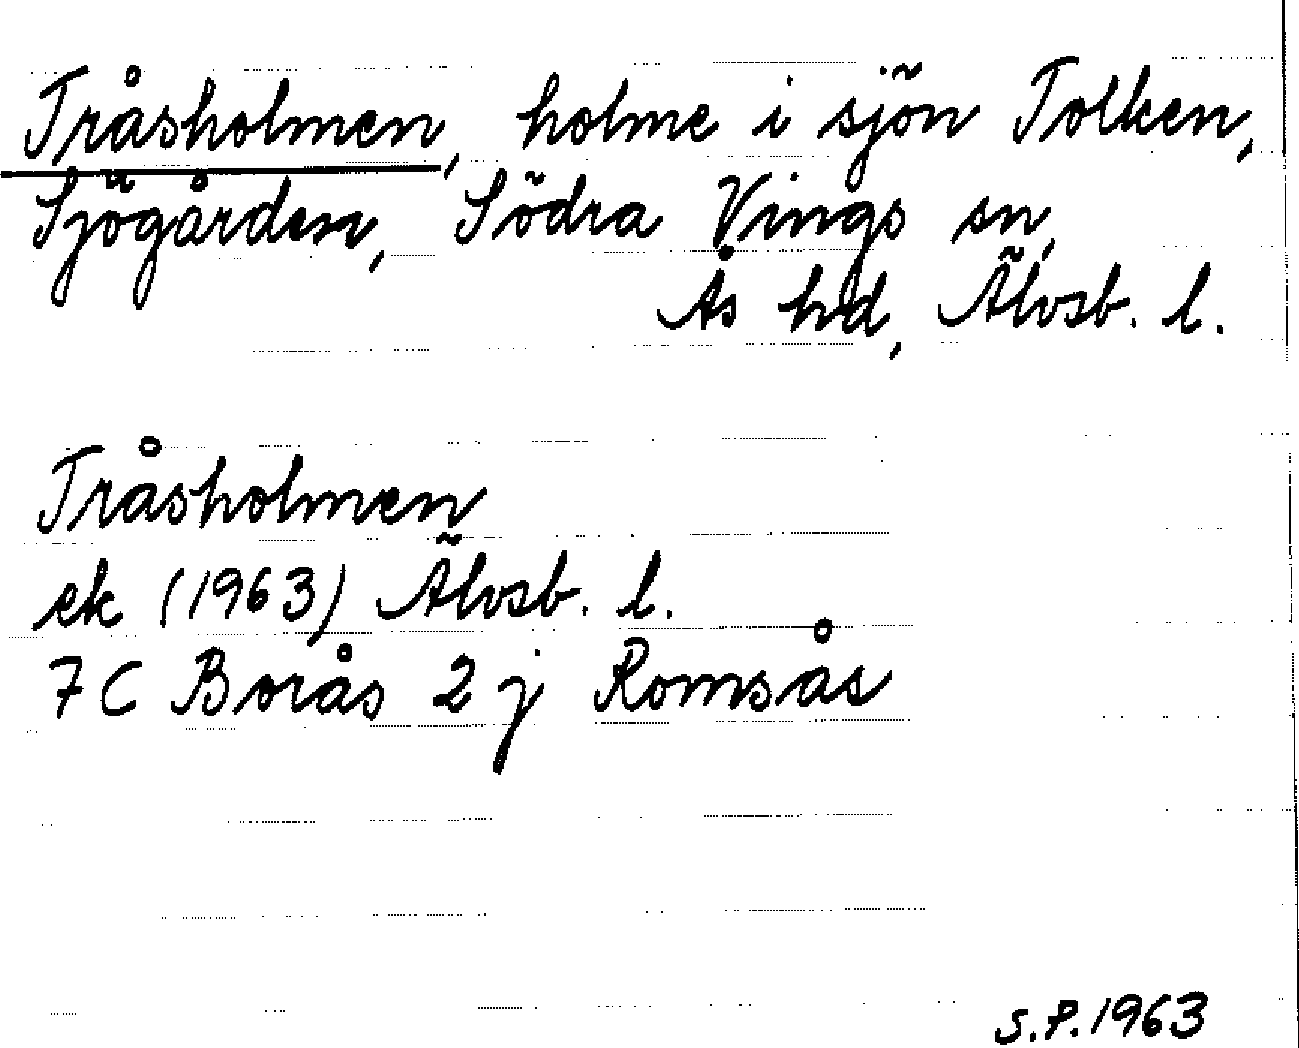 Tråsholmen, holme i sjön Tolken,
Sjögården, Södra Vings sn,
Ås hd, Älvsb. l.
Tråsholmen
ek (1963) Älvsb. l.
7C Borås 2 j Romsås
S.P. 1963